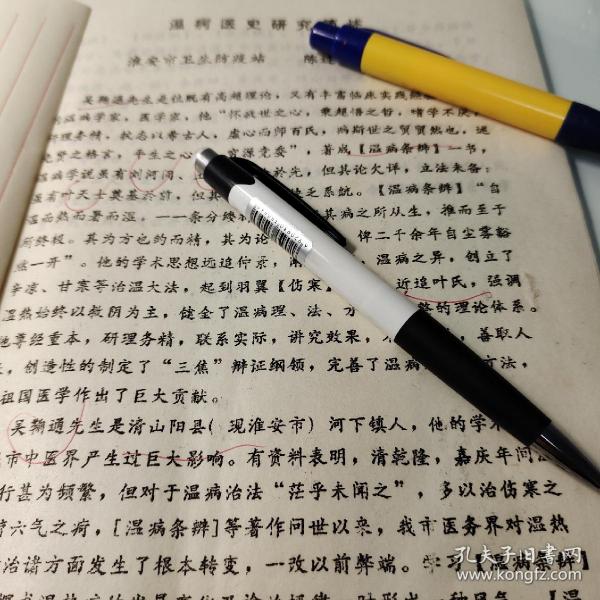 温病医史研究
淮安市卫生防疫站 陈
吴鞠通先生是位既有高超理论，又有丰富临床实践经
温病学家，医学家，他“怀救世之心，秉超悟之哲，嗜学不厌，
理务精，抗志以希古人，虚心而师百氏，病斯世之贸贸然也，述
先贤之格言，平生之心 穷源竟委”，著成【温病条辨】一书，
温病学说虽有刘河间、 於先，但其论欠详，立法未备；
有叶天士奠基於前，但其 乏系统。【温病条辨】“自
温而热而暑而湿，一一条分缕 其病之所从生，推而至于
所终极。其为方也约而精，其为论 俾二千余年自尘雾豁
一开”。他的学术思想远追仲景， 温病之异，创立了
辛凉、甘寒等治温大法，起到羽翼【伤寒 近追叶氏，强调
温热始终以救阴为主，健全了温病理、法、方 整的理论体系。
他尊经重本，研理务精，联系实际，讲究效果， 善取人
，创造性的制定了“三焦”辩证纲领，完善了温病 方法，
祖国医学作出了巨大贡献。
吴鞠通先生是清山阳县（现淮安市）河下镇人，他的学术
市中医界产生过巨大影响。有资料表明，清乾隆，嘉庆年间
行甚为频繁，但对于温病治法“茫乎未闻之”，多以治伤寒之
六气之病，[温病条辨]等著作问世以来，我市医务界对温热
治诸方面发生了根本转变，一改以前弊端。学习【温病条辨】
孔夫子旧书网
www.kongfz.com